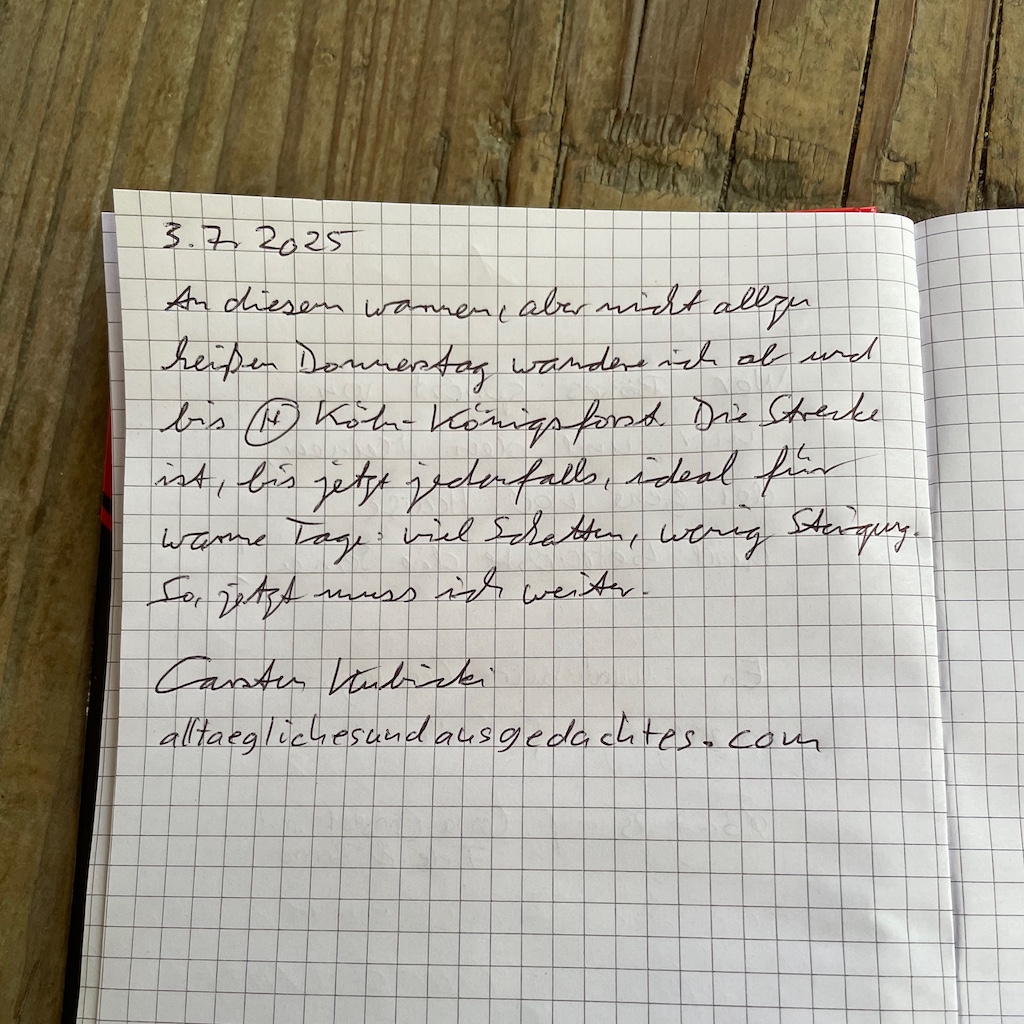 3.7.2025
An diesem warmen, aber nicht allzu
heißen Donnerstag wandere ich ab und
bis (H) Köln-Königsforst. Die Strecke
ist, bis jetzt jedenfalls, ideal für
warme Tage: viel Schatten, wenig Steigung.
So, jetzt muss ich weiter.
Carsten Kubicki
alltaeglichesundausgedachtes.com